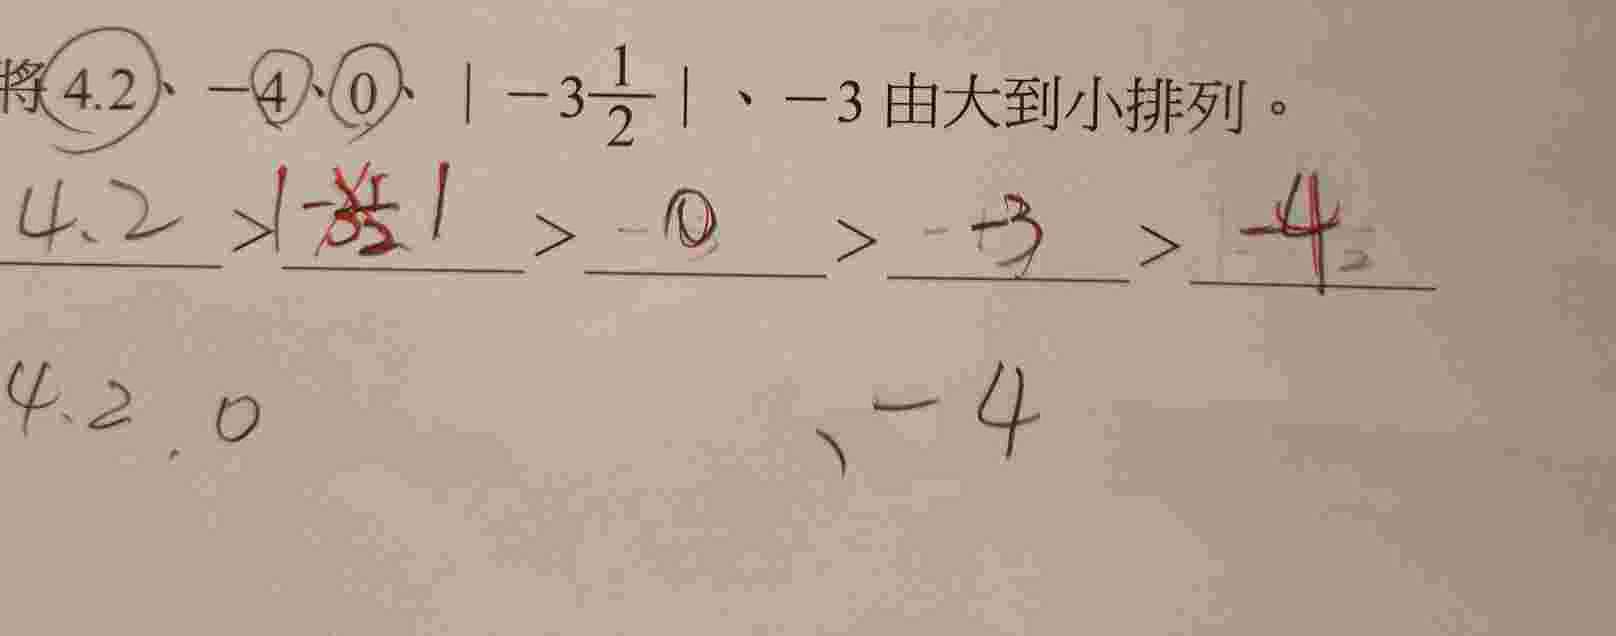 將 4.2、-4、0、| -3 1/2 |、-3 由大到小排列。
4.2 > | -3 1/2 | > 0 > -3 > -4
4.2 . 0 、-4